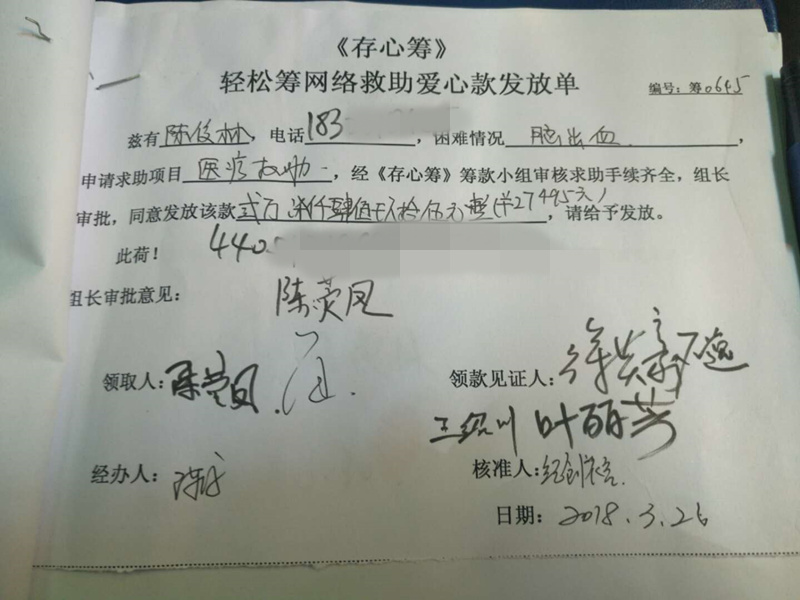 《存心筹》
轻松筹网络救助爱心款发放单
编号：筹0645
兹有陈俊林，电话183，困难情况脑出血，
申请求助项目医疗救助，经《存心筹》筹款小组审核求助手续齐全，组长
审批，同意发放该款贰万柒仟肆佰玖拾伍元整(¥27495元)，请给予发放。
此荷！
440
组长审批意见：陈荧凤
领取人：
领款见证人：
叶丽芳
经办人：
核准人：
日期：2018.3.26